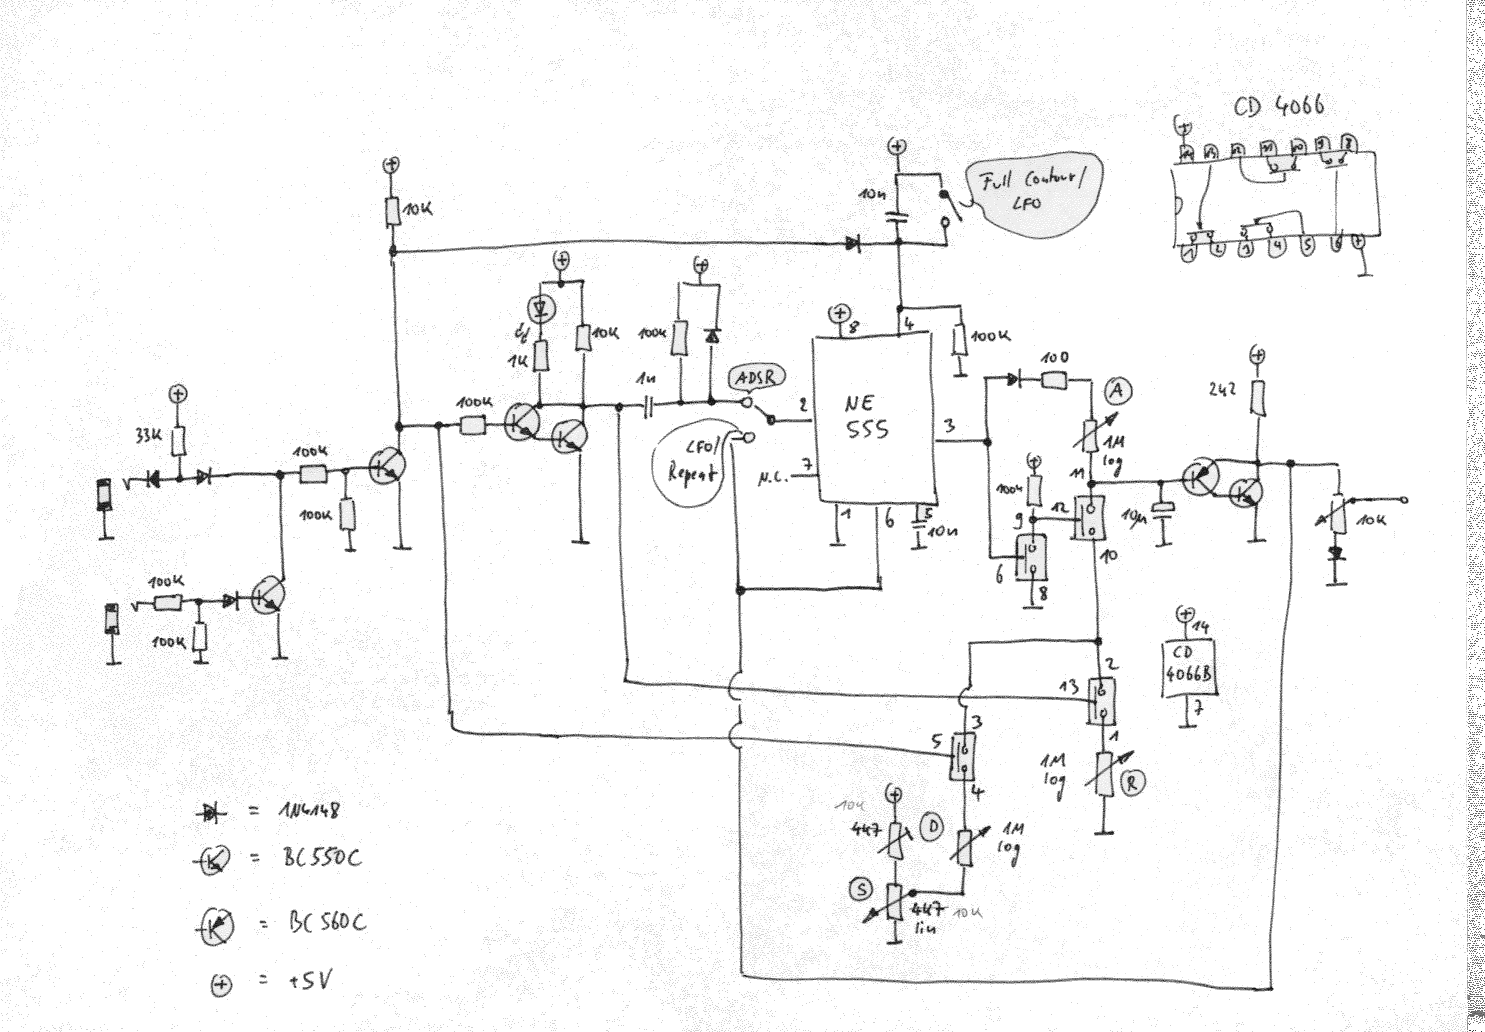 CD 4066
+
14 13 12 11 10 9 8
1 2 3 4 5 6 7
+
10K
+
10n
Full Contour/
LFO
+
+
10K
1K
+
100K
+
8
4
100K
1n
ADSR
2
NE
555
3
LFO/
Repeat
N.C.
7
1
6
5
10n
100
A
1M
log
11
+
100K
9
12
10
6
8
10µ
+
2K2
10K
+
33K
100K
100K
100K
100K
100K
+
14
CD
4066B
7
2
13
1
1M
log
R
3
5
4
10K
+
4K7
D
1M
log
S
4K7
10K
lin
= 1N4148
= BC550C
= BC560C
+ = +5V